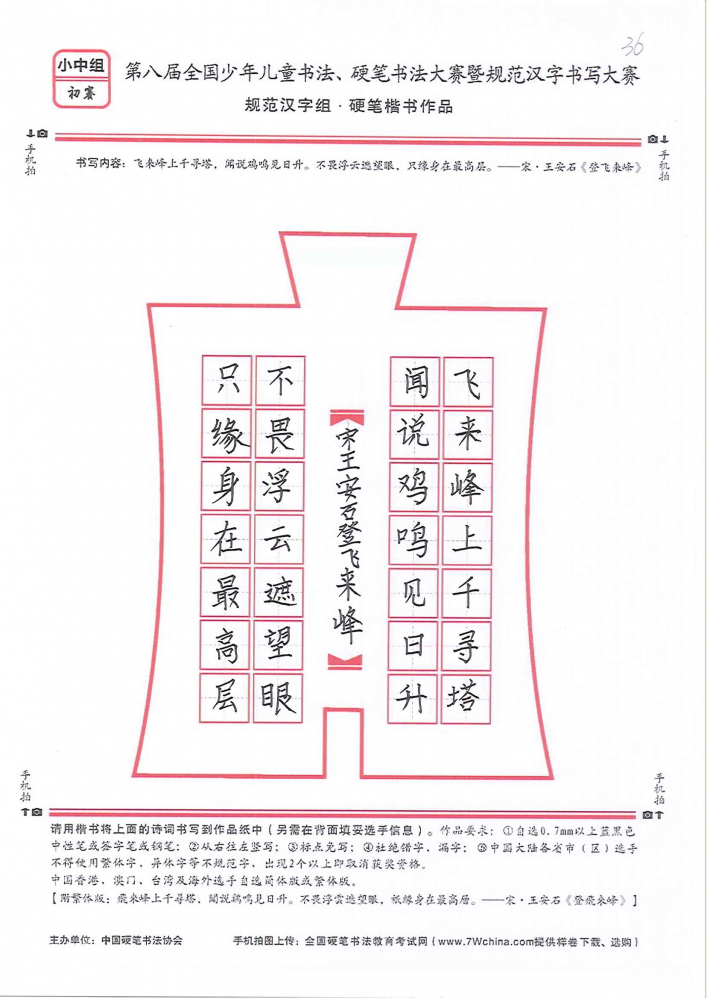 36
小中组
初赛
第八届全国少年儿童书法、硬笔书法大赛暨规范汉字书写大赛
规范汉字组·硬笔楷书作品
手机拍
手机拍
书写内容：飞来峰上千寻塔，闻说鸡鸣见日升。不畏浮云遮望眼，只缘身在最高层。——宋·王安石《登飞来峰》
飞来峰上千寻塔
闻说鸡鸣见日升
宋王安石登飞来峰
不畏浮云遮望眼
只缘身在最高层
手机拍
手机拍
请用楷书将上面的诗词书写到作品纸中（另需在背面填妥选手信息）。作品要求：①自选0.7mm以上蓝黑色
中性笔或签字笔或钢笔；②从右往左竖写；③标点免写；④杜绝错字，漏字；⑤中国大陆各省市（区）选手
不得使用繁体字，异体字等不规范字，出现2个以上即取消获奖资格。
中国香港、澳门、台湾及海外选手自选简体版或繁体版。
【附繁体版：飛來峰上千尋塔，聞說鷄鳴見日昇。不畏浮雲遮望眼，祇緣身在最高層。——宋·王安石《登飛來峰》】
主办单位：中国硬笔书法协会
手机拍图上传：全国硬笔书法教育考试网（www.7Wchina.com提供样卷下载、选购）